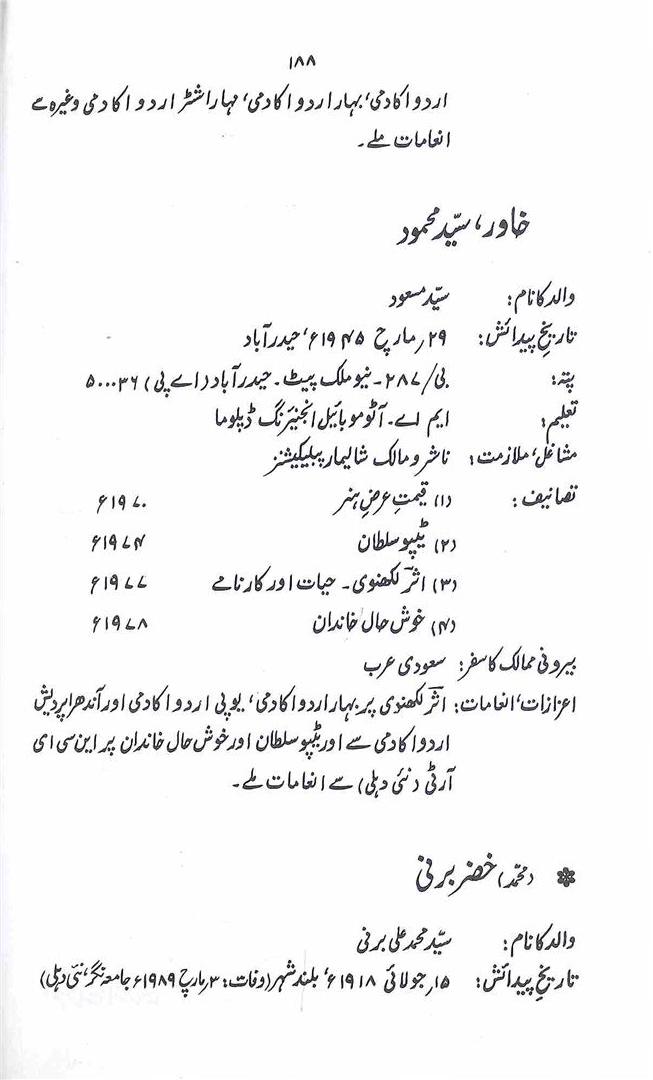 ۱۸۸
اردو اکادمی، بہار اردو اکادمی، مہاراشٹر اردو اکادمی وغیرہ سے
انعامات ملے۔
خاور، سیّد محمود
والد کا نام: سیّد مسعود
تاریخِ پیدائش: ۲۹؍ مارچ ۱۹۴۵ء، حیدرآباد
پتہ: بی/۲۸۷۔ نیو ملک پیٹ۔ حیدرآباد (اے پی) ۵۰۰۰۳۶
تعلیم: ایم اے۔ آٹوموبائیل انجنیئرنگ ڈپلوما
مشاغل، ملازمت: ناشر و مالک شالیمار پبلیکیشنز
تصانیف: (۱) قیمتِ عرضِ ہنر ۱۹۷۰ء
(۲) ٹیپو سلطان ۱۹۷۴ء
(۳) اثرؔ لکھنوی۔ حیات اور کارنامے ۱۹۷۷ء
(۴) خوش حال خاندان ۱۹۷۸ء
بیرونی ممالک کا سفر: سعودی عرب
اعزازات، انعامات: اثرؔ لکھنوی پر بہار اردو اکادمی، یوپی اردو اکادمی اور آندھرا پردیش
اردو اکادمی سے اور ٹیپو سلطان اور خوش حال خاندان پر این سی ای
آر ٹی (نئی دہلی) سے انعامات ملے۔
❁ (محمّد) خضر برنی
والد کا نام: سیّد محمد علی برنی
تاریخِ پیدائش: ۱۵؍ جولائی ۱۹۱۸ء، بلند شہر (وفات: ۳؍ مارچ ۱۹۸۹ء جامعہ نگر، نئی دہلی)